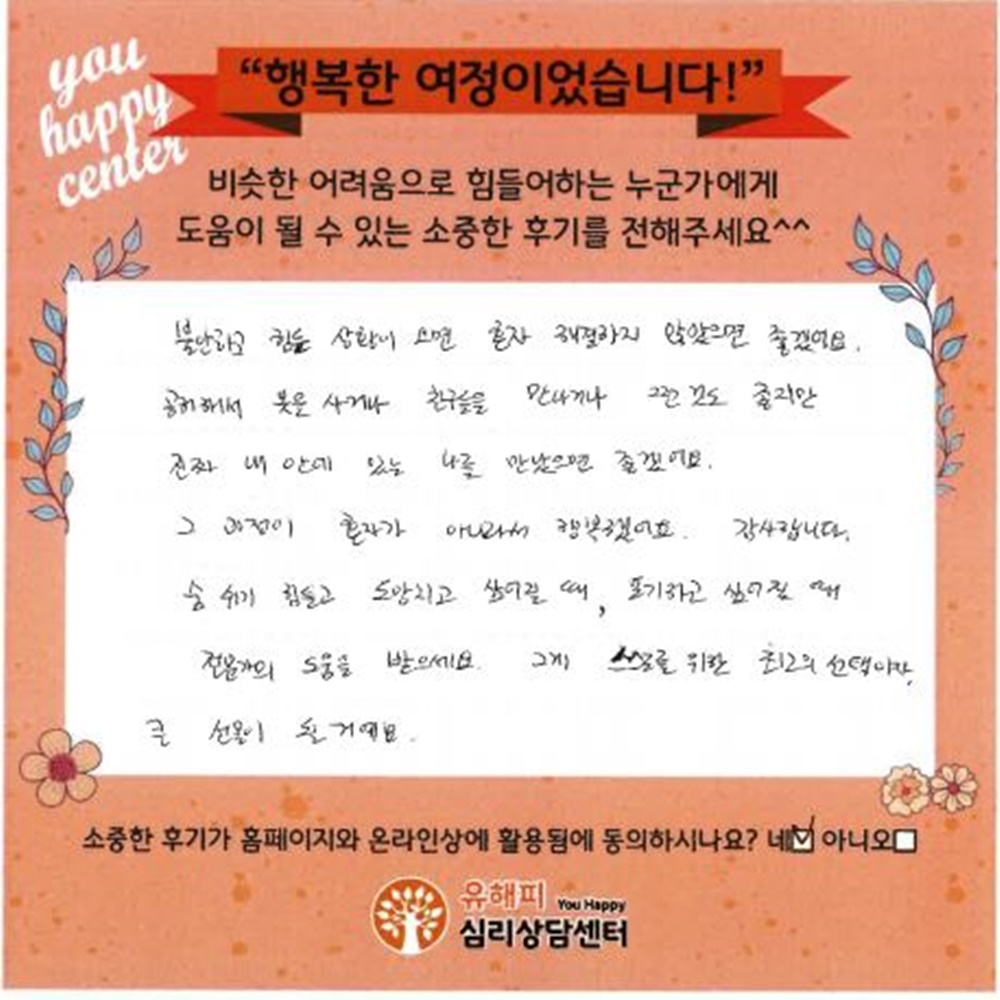 you
happy
center
“행복한 여정이었습니다!”
비슷한 어려움으로 힘들어하는 누군가에게
도움이 될 수 있는 소중한 후기를 전해주세요^^
불안하고 힘든 상황이 오면 혼자 해결하지 않았으면 좋겠어요.
공허해서 옷을 사거나 친구들을 만나거나 그런 것도 좋지만
진짜 내 안에 있는 나를 만났으면 좋겠어요.
그 과정이 혼자가 아니라서 행복했어요. 감사합니다.
숨 쉬기 힘들고 도망치고 싶어질 때, 포기하고 싶어질 때
전문가의 도움을 받으세요. 그게 를 위한 최고의 선택이자,
큰 선물이 될 거예요.
소중한 후기가 홈페이지와 온라인상에 활용됨에 동의하시나요? 네☑ 아니오☐
유해피 You Happy
심리상담센터